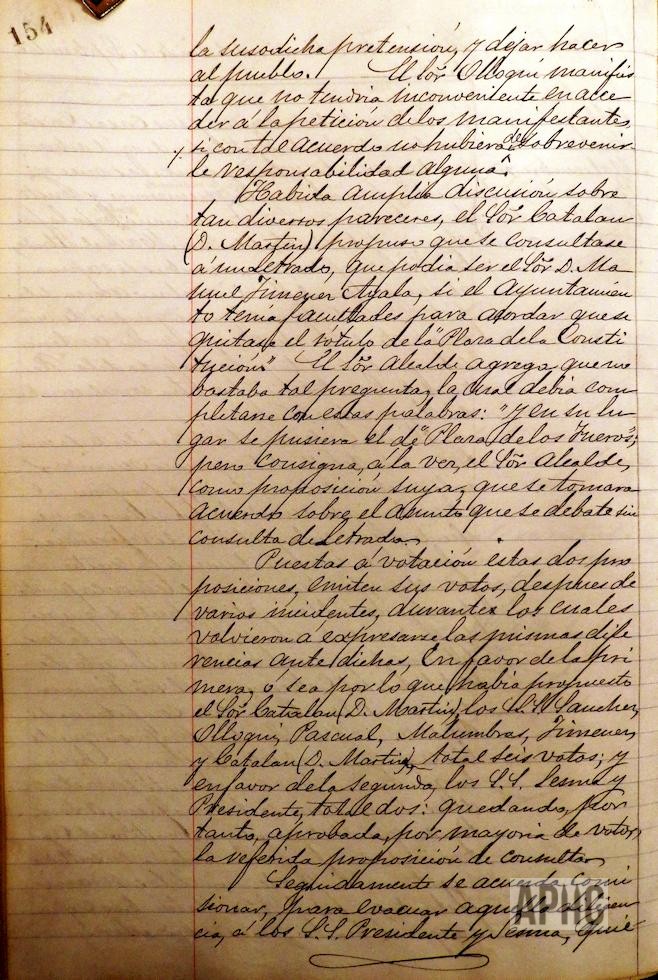 154
la susodicha pretensión, y dejar hacer
al pueblo. El Sor. Olloqui manifies
ta que no tendria inconveniente en acce
der á la petición de los manifestantes,
si con tal acuerdo no hubiera de sobrevenir
le responsabilidad alguna.
Habida amplia discusión sobre
tan diversos pareceres, el Sor. Catalan
(D. Martin) propuso que se consultase
á un Letrado, que podia ser el Sor. D. Ma
nuel Jimenez Ayala, si el Ayuntamien
to tenia facultades para acordar que se
quitase el rótulo de la "Plaza de la Consti
tución." El Sor. Alcalde agrega que no
bastaba tal pregunta, la cual debia com
pletarse con estas palabras: "y en su lu
gar se pusiera el de "Plaza de los Fueros";
pero consigna, á la vez, el Sor. Alcalde,
como proposición suya, que se tomara
acuerdo sobre el asunto que se debate sin
consulta de Letrado.
Puestas á votación estas dos pro
posiciones, emiten sus votos, despues de
varios incidentes, durante los cuales
volvieron a expresarse las mismas dife
rencias ante dichas, en favor de la pri
mera, ó sea por lo que habia propuesto
el Sor. Catalan (D. Martin), los S.S. Sanchez,
Olloqui, Pascual, Malumbres, Jimenez
y Catalan (D. Martin), total seis votos; y
en favor de la segunda, los S.S. Sesma y
Presidente, total dos: quedando, por
tanto, aprobada, por mayoria de votos,
la referida proposición de consulta.
Seguidamente se acuerda comi
sionar, para evacuar aquella diligen
cia, á los S.S. Presidente y Sesma, quie
APHC